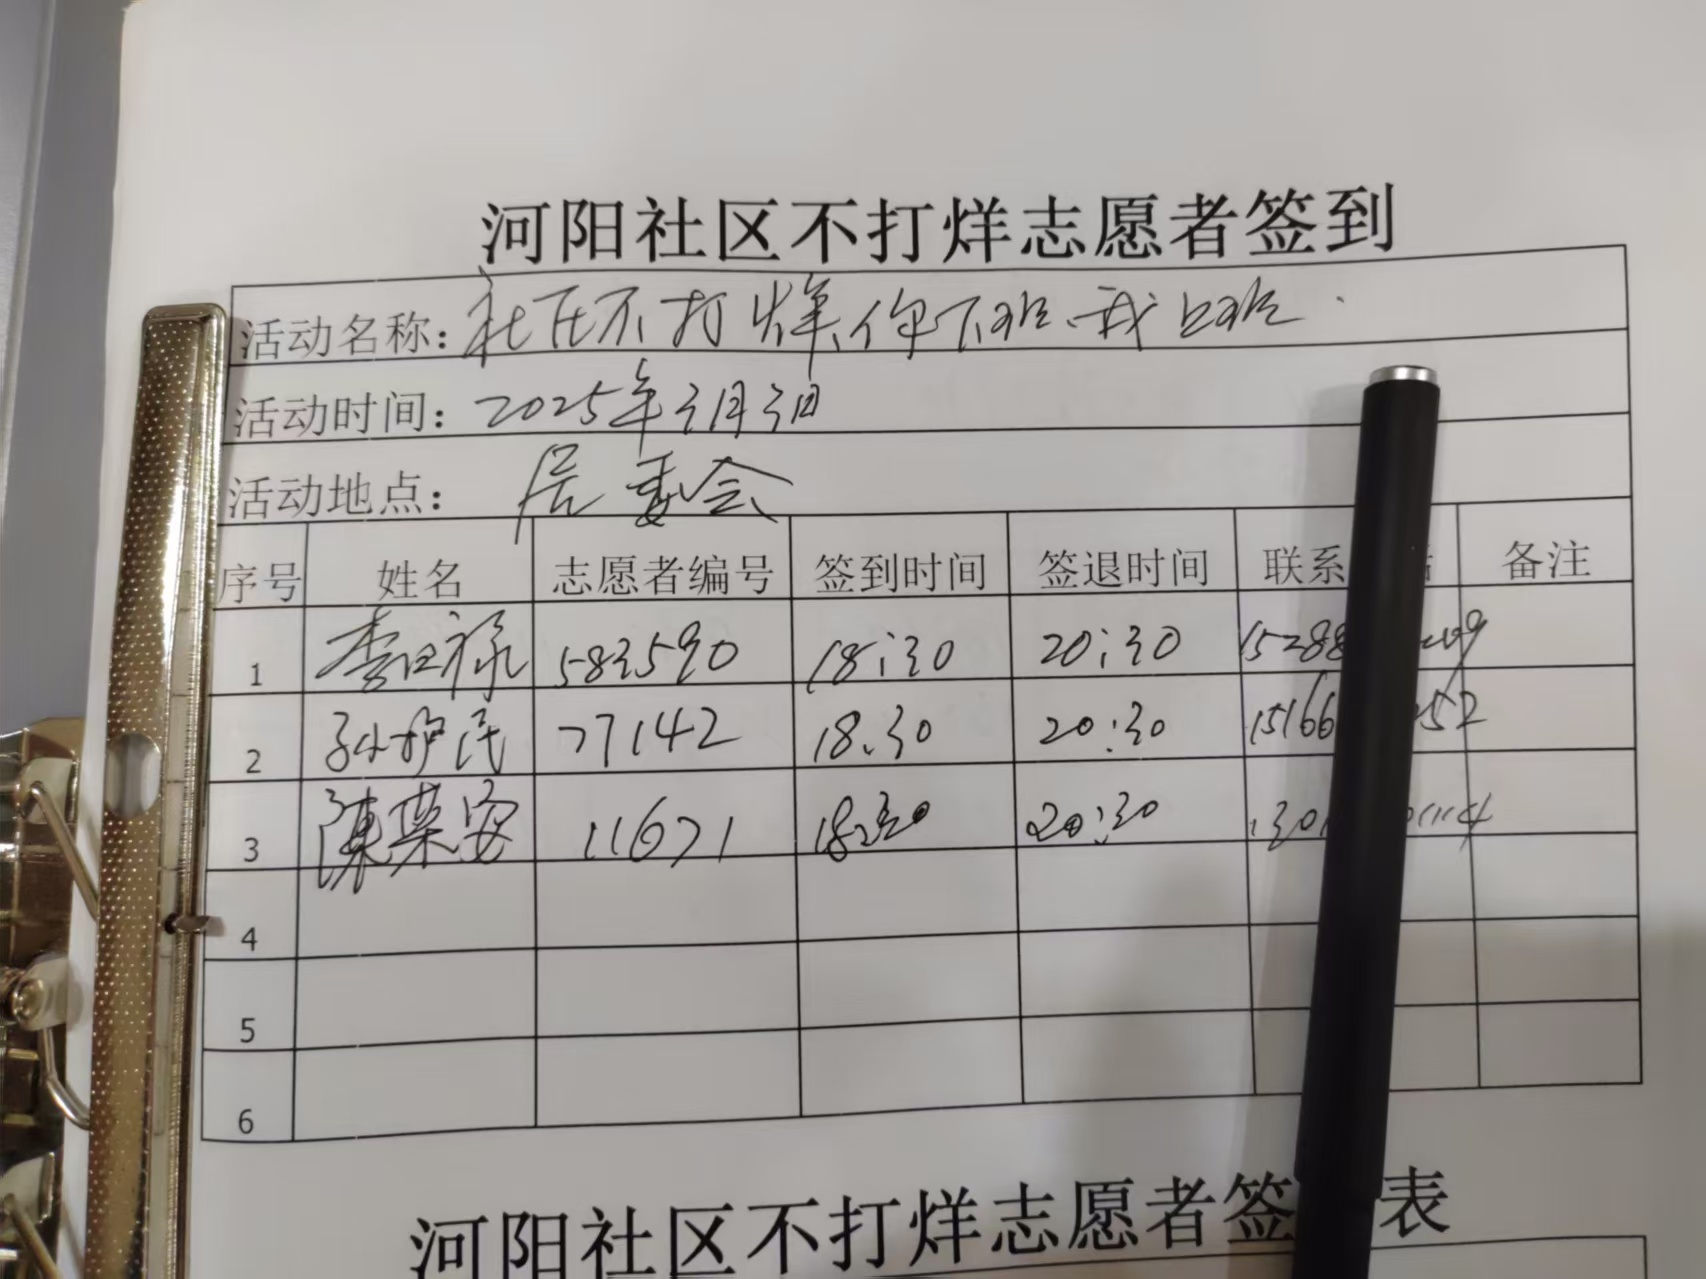 河阳社区不打烊志愿者签到
活动名称：社区不打烊.你下班.我上班.
活动时间：2025年3月3日
活动地点：居委会
序号 姓名 志愿者编号 签到时间 签退时间 联系 备注
1 李曰禄 583590 18:30 20:30 15288
2 孙护民 77142 18.30 20:30 15166 252
3 陳荣安 11671 18:30 20:30
4
5
6
河阳社区不打烊志愿者签 表